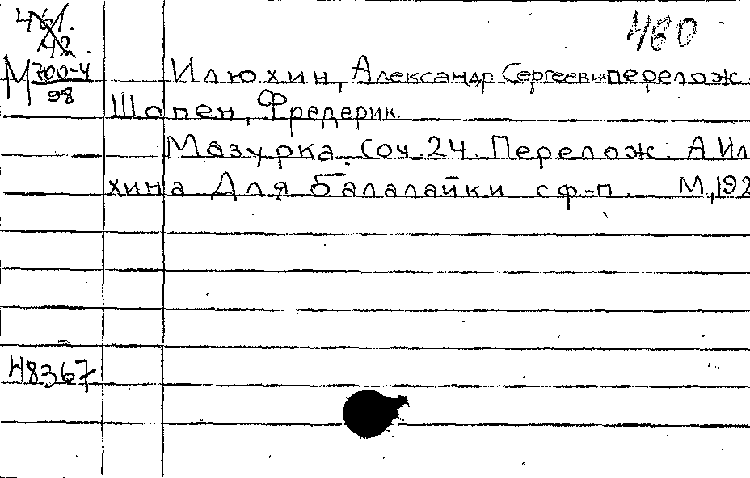 480
М 700-4
98
Илюхин, Александр Сергеевич перелож.
Шопен, Фредерик.
Мазурка. Соч. 24. Перелож. А Ил
хина Для балалайки с ф-п. М, 192
48367